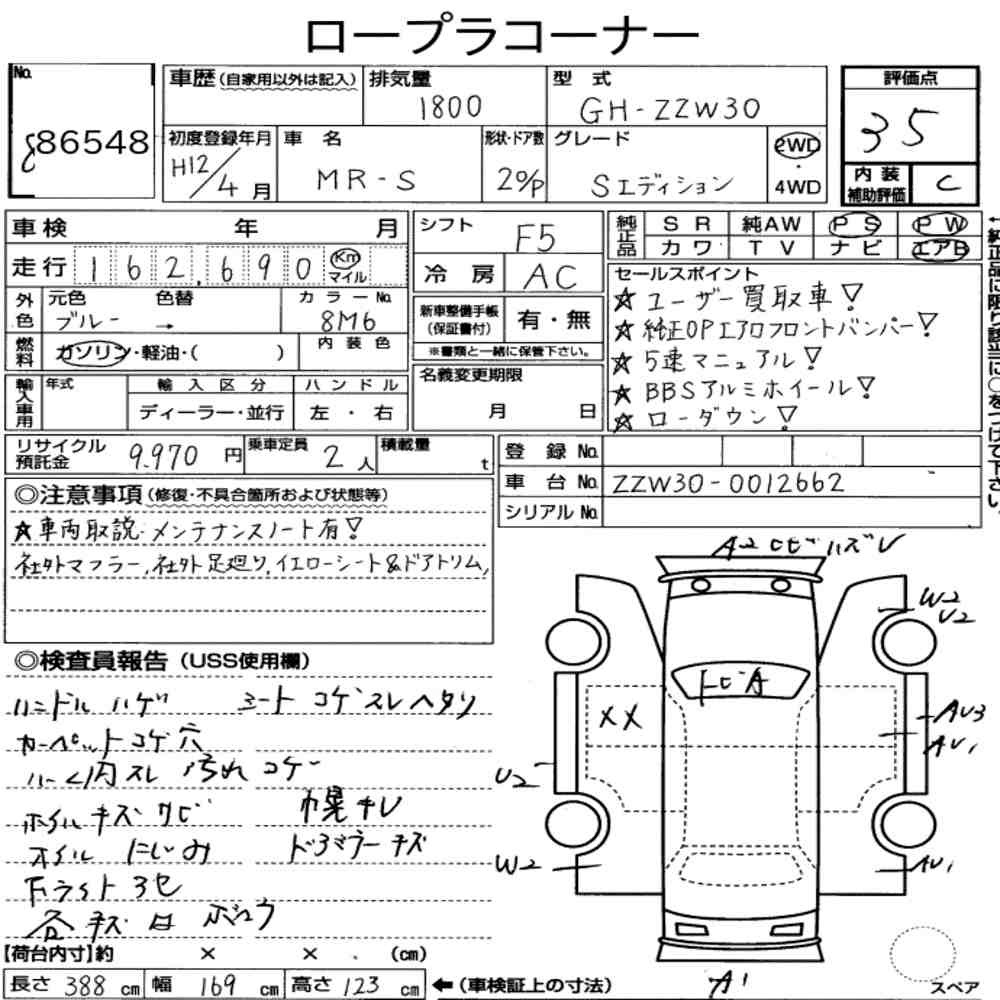 ロープラコーナー
No.
86548
車歴(自家用以外は記入)
排気量
1800
型 式
GH-ZZW30
評価点
35
初度登録年月
H12/4月
車 名
MR-S
形状・ドア数
2o/p
グレード
Sエディション
2WD
・
4WD
内 装
補助評価
C
車検 年 月
走行 162,690 Km マイル
外色
元色 色替
ブルー →
カラーNo.
8M6
燃料
ガソリン・軽油・( )
内 装 色
輸入車用
年式
輸 入 区 分
ディーラー・並行
ハ ン ド ル
左 ・ 右
シフト
F5
冷 房
AC
新車整備手帳
(保証書付)
有・無
※書類と一緒に保管下さい。
名義変更期限
月 日
純正品
S R 純AW P S P W
カ ワ T V ナ ビ エアB
←純正品に限り該当に○をつけて下さい。
セールスポイント
☆ユーザー買取車!
☆純正OPエアロフロントバンパー!
☆5速マニュアル!
☆BBSアルミホイール!
☆ローダウン!
リサイクル
預託金
9,970 円
乗車定員
2 人
積載量
t
登 録 No.
車 台 No.
ZZW30-0012662
シリアル No.
◎注意事項(修復・不具合箇所および状態等)
☆車両取説・メンテナンスノート有!
社外マフラー,社外足廻り,イエローシート&ドアトリム,
◎検査員報告(USS使用欄)
ハンドル ハゲ シート コゲ スレ ヘタリ
カーペット コゲ 穴
内 スレ 汚れ コゲ
ホイル キズ サビ 幌 キレ
オイル にじみ ドアミラー キズ
下
各 キズ
A2 トビ ハズレ
W2
U2
トビA
XX
AU3
AU1
U2
W2
AU1
A1
スペア
【荷台内寸】約 × × (cm)
長さ 388 cm 幅 169 cm 高さ 123 cm ←(車検証上の寸法)